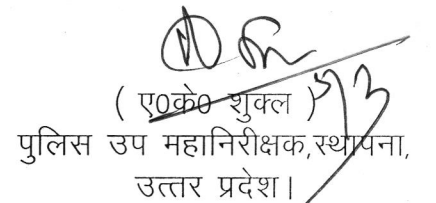 ( ए0के0 शुक्ल )
पुलिस उप महानिरीक्षक,स्थापना,
उत्तर प्रदेश।